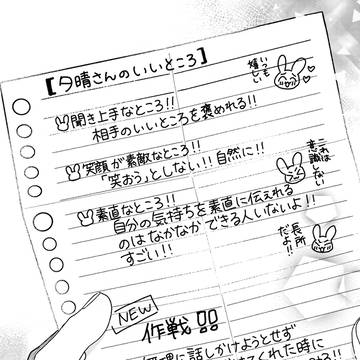 【夕晴さんのいいところ】
聞き上手なところ!!
相手のいいところを褒めれる!!
いつも
嬉しい
笑顔が素敵なところ!!
「笑おう」としない!!自然に!!
これは
意識しない
素直なところ!!
自分の気持ちを素直に伝えれる
のはなかなかできる人いないよ!!
すごい!!
長所
だよ!!
NEW
作戦!!
に話しかけようとせず
くれた時に